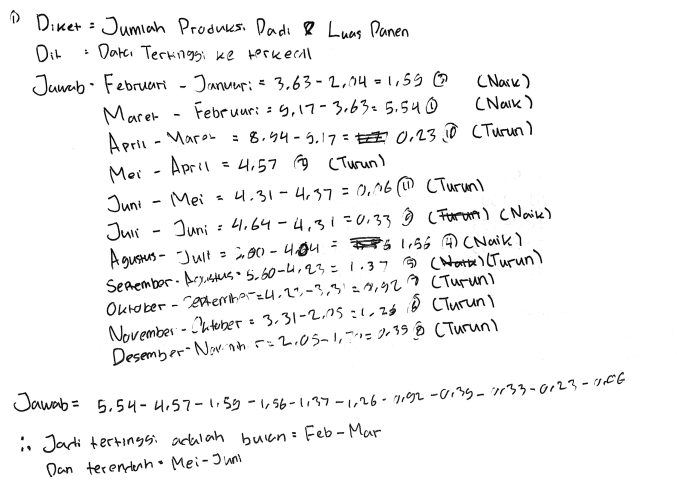 ① Diket = Jumlah Produksi Padi & Luas Panen
Dit : Data Tertinggi ke terkecil
Jawab = Februari - Januari = 3,63 - 2,04 = 1,59 ③ (Naik)
Maret - Februari = 9,17 - 3,63 = 5.54 ① (Naik)
April - Maret = 8.94 - 9.17 = 0,23 ⑩ (Turun)
Mei - April = 4,57 ② (Turun)
Juni - Mei = 4.31 - 4,37 = 0,06 ⑪ (Turun)
Juli - Juni = 4,64 - 4,31 = 0,33 ⑨ (Turun) (Naik)
Agustus - Juli = 4,04 = 1,56 ④ (Naik)
September - Agustus = 5.60 - 4,23 = 1.37 ⑤ (Naik) (Turun)
Oktober - September = 4,23 - 3,31 = 0,92 ⑦ (Turun)
November - Oktober = 3.31 - 2,05 = 1,26 ⑥ (Turun)
Desember - November = 2,05 - = 0,39 ⑧ (Turun)
Jawab = 5.54 - 4,57 - 1,59 - 1,56 - 1,37 - 1,26 - 0,92 - 0,39 - 0,33 - 0,23 - 0,06
∴ Jadi tertinggi adalah bulan = Feb - Mar
Dan terendah = Mei - Juni